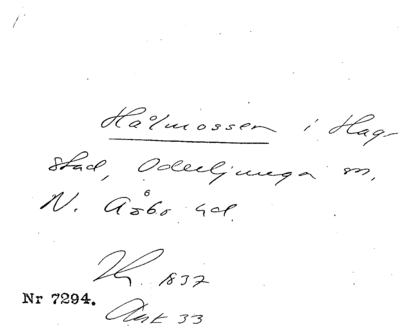 Hålmossen i Hag-
stad, Oderljunga sn,
N. Åsbo hd.
1837
Nr 7294.
33